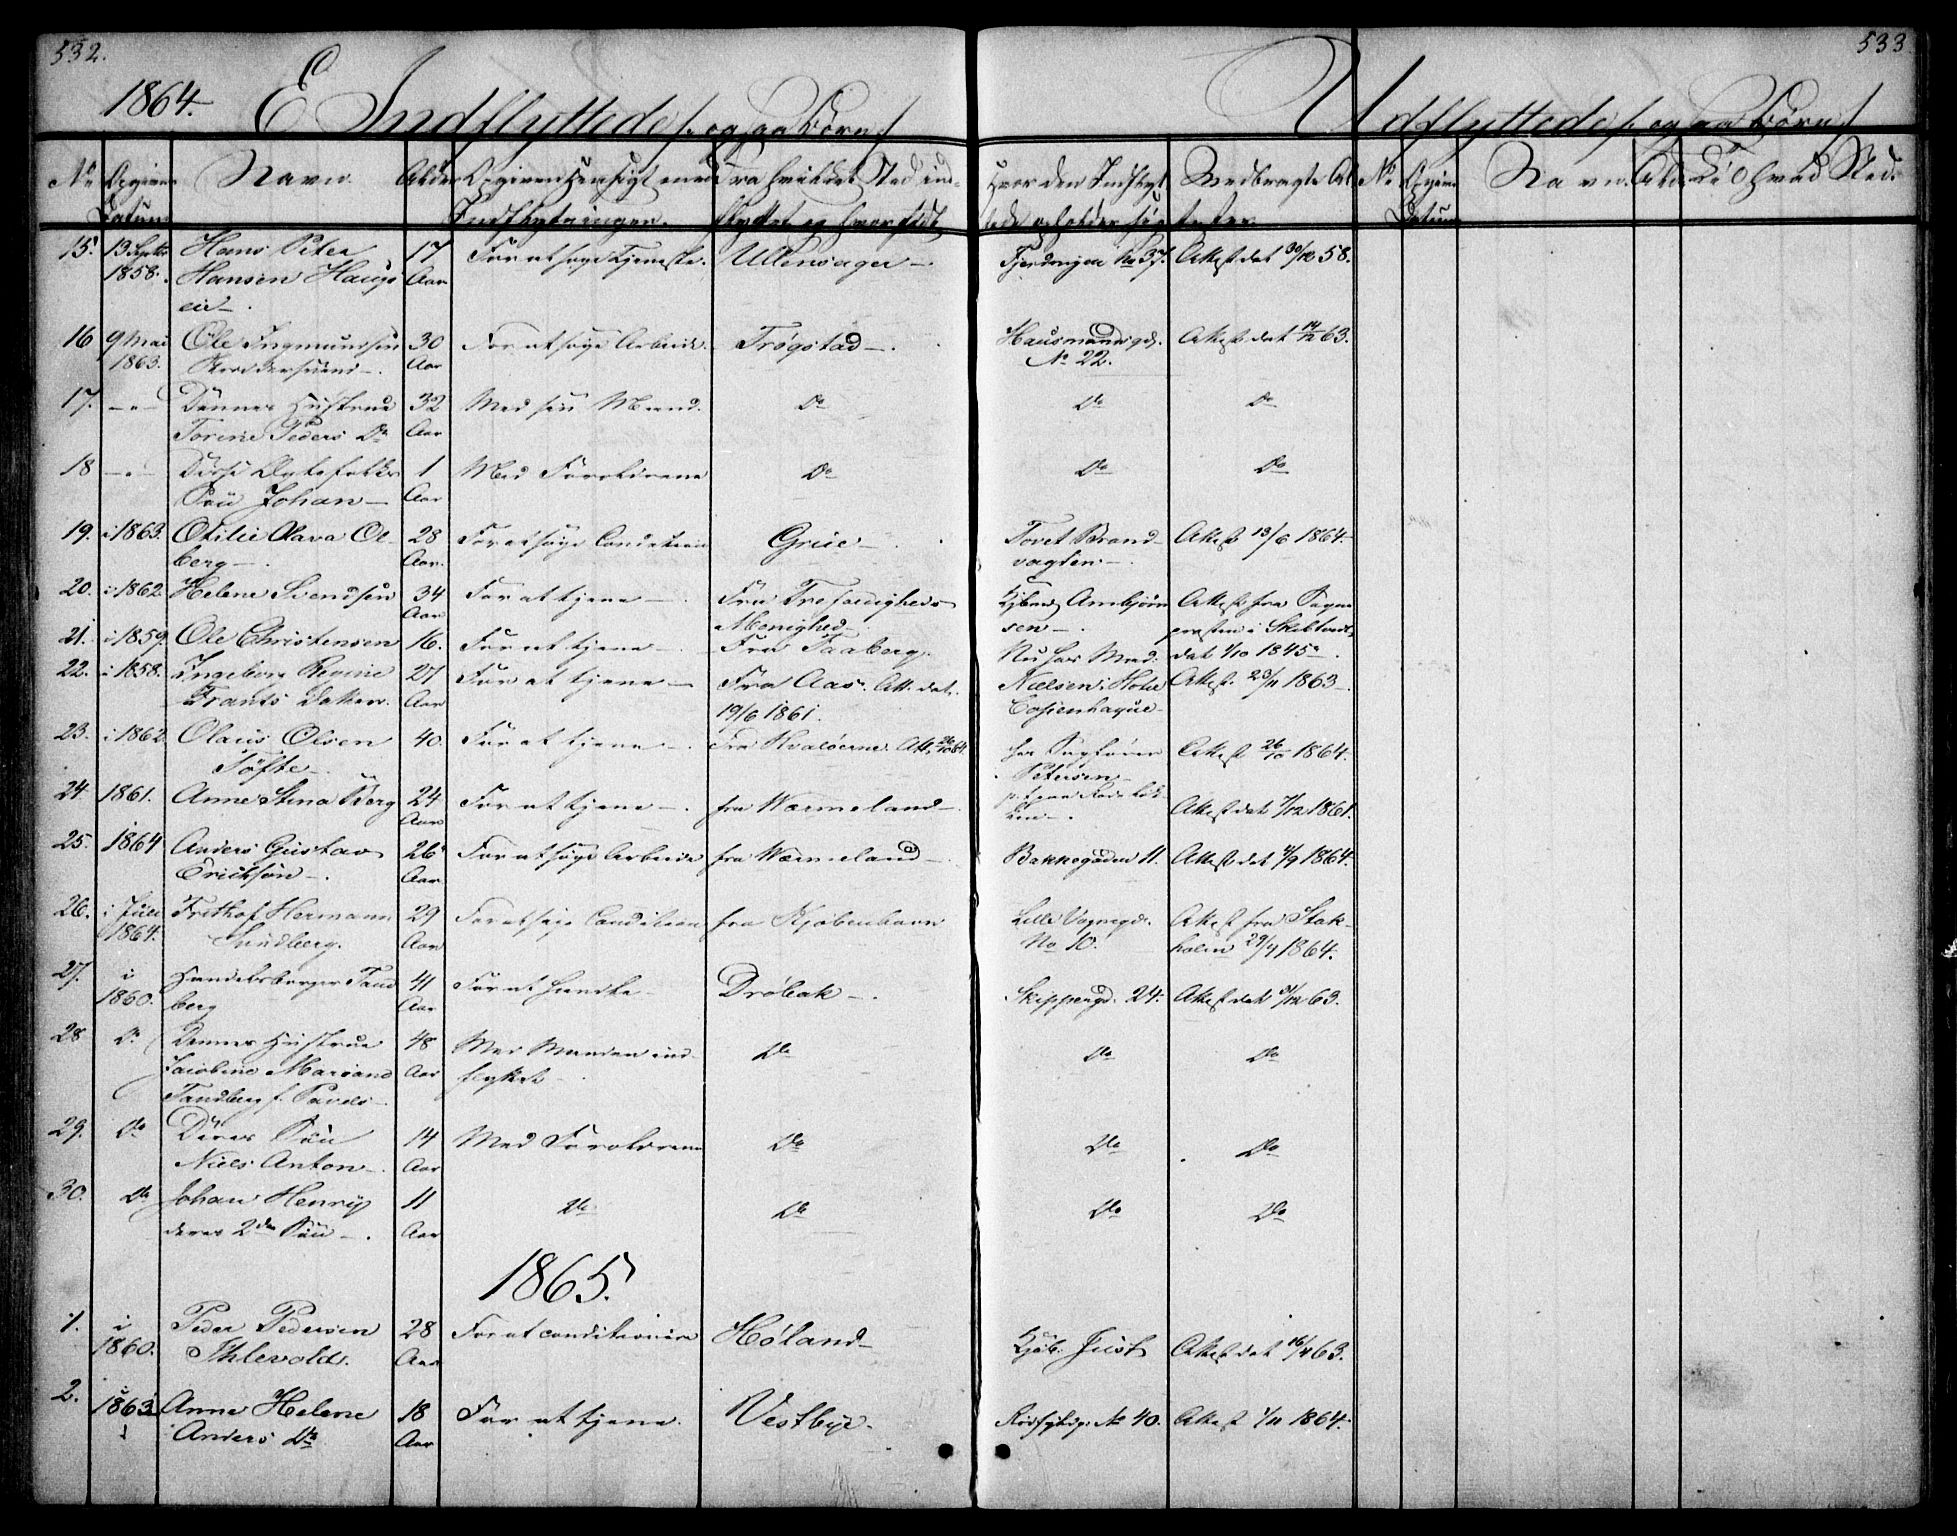 532.
533
1864. E. Indflyttede /: ogsaa Børn :/
Udflyttede /: ogsaa Børn :/
No Opgiven Datum Navn. Alder Opgiven Hensigt med Indflytningen. Fra hvilket Sted indflyttet og hvor sidst Hvor den Indflyttede opholder sig Medbragte Attester. No Opgiven Datum Navn. Alder Til hvad Sted.
15. 13 Septbr Hans Peter 17 For at søge Tjeneste. Ullensager —. Fjerdingen No 37. Attest dat 30/12 58.
1858. Hansen Haugs Aar
eie —.
16 9 Mai Ole Ingmundsen 30 For at søge Arbeide. Trøgstad —. Hausmandsgd. Attest dat 14/12 63.
1863. Aar No 22.
17. —"— Dennes Hustrue 32 Med sin Mand. Do Do Do
Torine Peders Dr Aar
18 —"— Disse Ægtefolks 1 Med Forældrene Do Do Do
Søn Johan — Aar
19. i 1863. Otilie Olava Ol- 28 For at søge Condition Grue — Tovet Brand- Attest 13/6 1864.
berg —. Aar. vagten —.
20. i 1862. Helene Svendsen 34 For at tjene —. Fra Trefoldigheds Kjbmd Ambjørn Attest fra Sogne
Aar Menighed — sen —. præsten i Skibtvedt
21. i 1859. Ole Christensen 16. For at tjene —. Fra Faaberg. Nu hos Mad. dat 1/10 1845 —.
22. i 1858. Ingeborg Regine 27 For at tjene — Fra Aas. Att. dat. Nielsen i Hotel Attest. 23/11 1863 —.
Frants Datter. Aar 19/6 1861. Copenhague —
23. i 1862. Olaus Olsen 40. For at tjene —. Fra Hvaløerne Att. 26/10 64. hos Sagfører Attest 26/10 1864.
Tøfte —. Petersen —
24. 1861. Anne Stina Berg 24 For at tjene —. fra Wærmeland —. Attest dat 7/12 1861.
Aar
25. 1864 Anders Gustav 26 For at søge Arbeide fra Wærmeland —. Bakkegaden 11. Attest dat 4/9 1864.
Erickson —. Aar
26. i Juli Frithof Hermann 29 For at søge Condition fra Kjøbenhavn Lille Vognmgd. Attest fra Stok-
1864. Sundberg. Aar No 10. holm 29/9 1864.
27. i Handelsborger Tand 41 For at handle — Drøbak —. Skippergd. 24. Attest dat 9/12 63.
1860. berg Aar
28 Do Dennes Hustrue 48 Med Manden ind- Do Do Do
Jacobine Mariane Aar flyttet —
Tandberg f. Pavels —
29. Do Deres Søn 14 Med Forældrene Do Do Do
Niels Anton —. Aar
30. Do Johan Henrik 11 Do Do Do Do
deres 2den Søn —. Aar
1865.
1. i Peder Pedersen 28 For at conditionere Høland — Kjøb. Just Attest dat 16/4 63.
1860. Ihlevold. Aar
2. i Anne Helene 18 For at tjene. Vestbye. No 40. Attest 1/11 1864.
1863. Anders Dr Aar